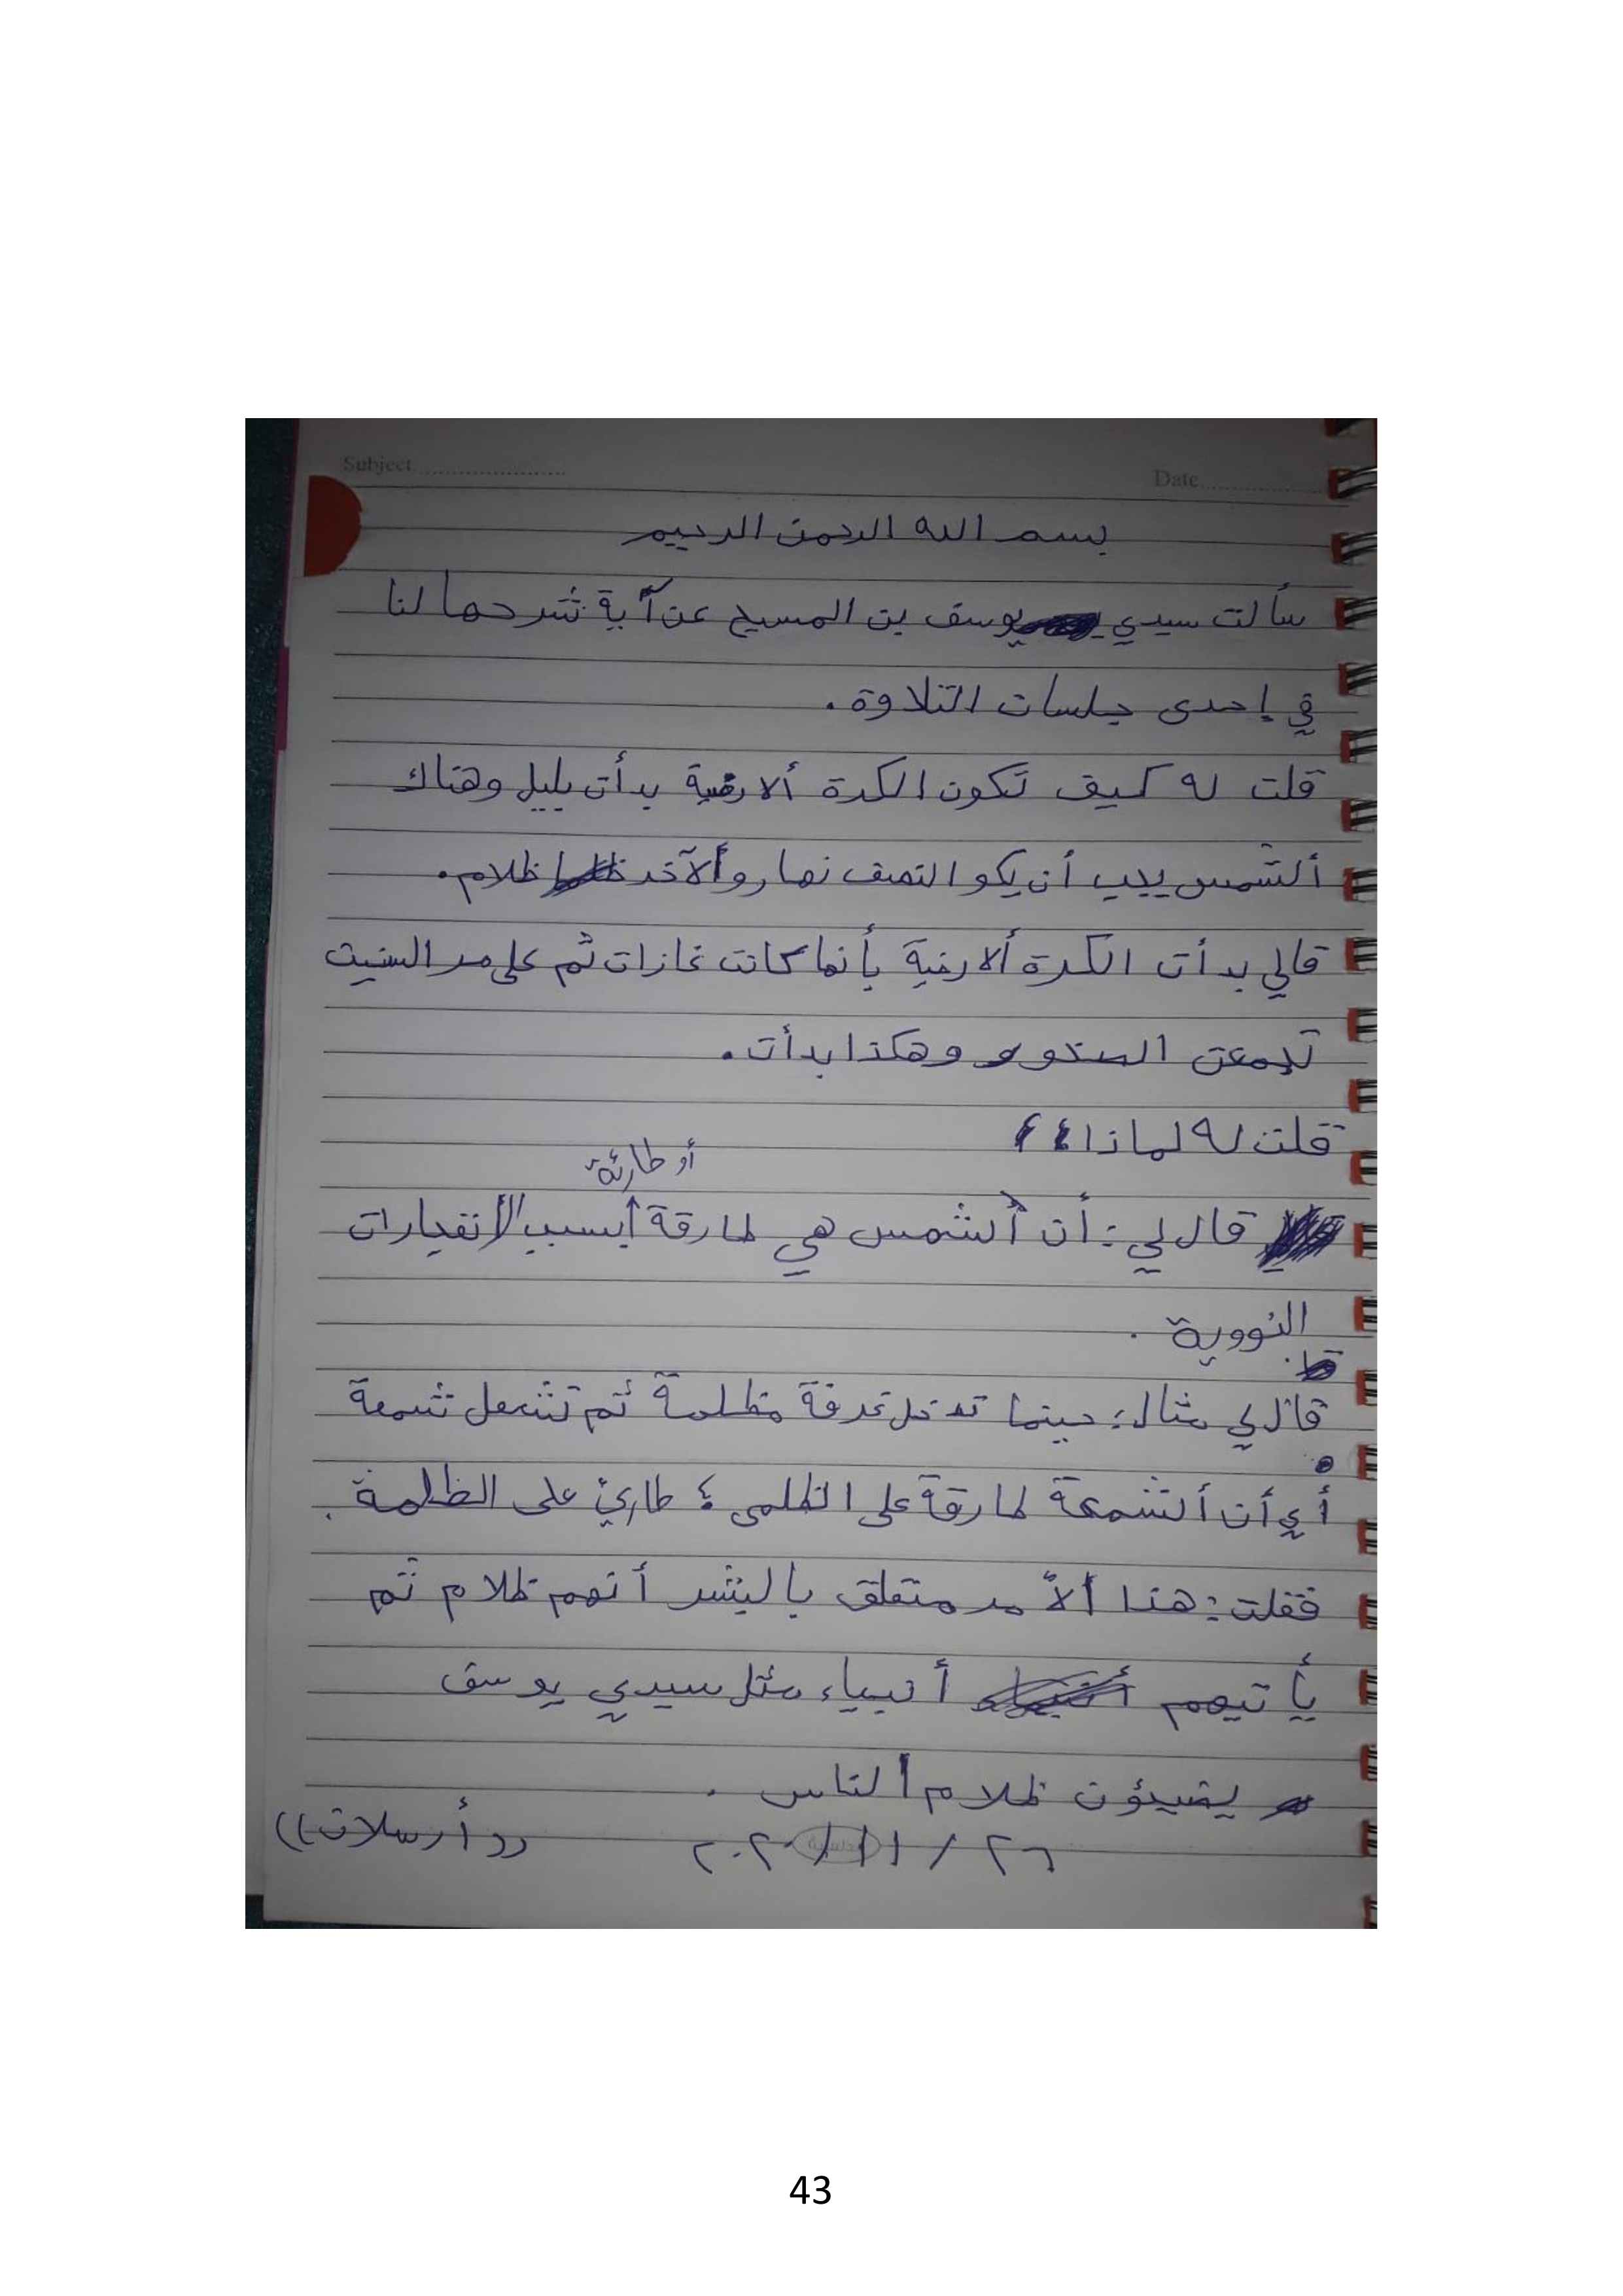 Subject....................
Date................
بسم الله الرحمن الرحيم
سألت سيدي يوسف بن المسيح عن آية شرحها لنا
في إحدى جلسات التلاوة.
قلت له كيف تكون الكرة ألارضية بدأت بليل وهناك
ألشمس يجب أن يكو النصف نهار وألآخر ظلام.
قالي بدأت الكرة ألارضية بأنها كانت غازات ثم على مر السنين
تجمعت الصخور وهكذا بدأت.
قلت له لماذا؟؟
أو طارئة
قال لي: أن ألشمس هي طارقة بسبب الأنفجارات
النووية.
قال لي مثال: حينما تدخل غرفة مظلمة ثم تشعل شمعة
أي أن ألشمعة طارقة على الظلمى؛ طارئ على الظلمة.
فقلت: هذا ألأمر متعلق بالبشر أنهم ظلام ثم
يأتيهم أنبياء مثل سيدي يوسف
يضيؤن ظلام ألناس.
٢٦ / ١١ / ٢٠٢٠
((أرسلان))
43